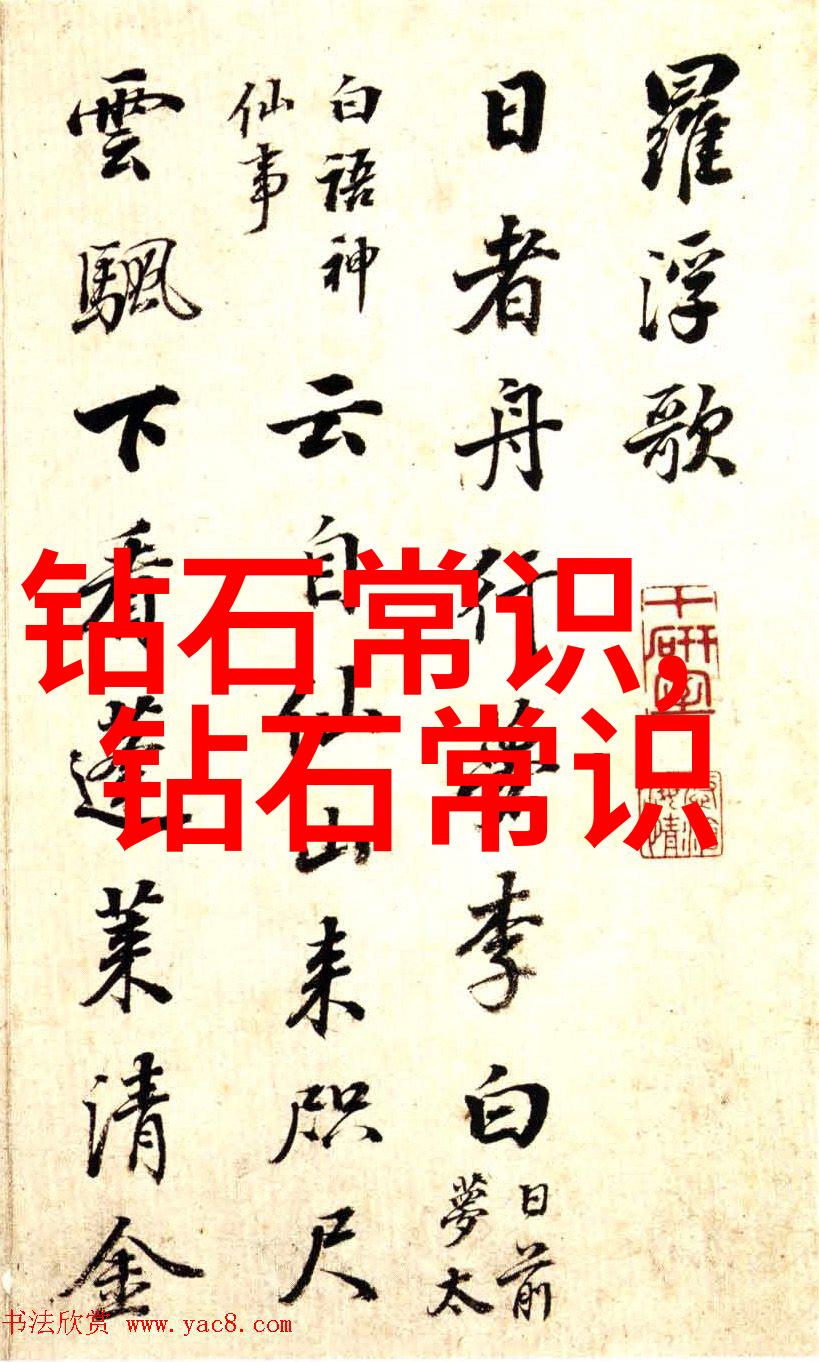 羅浮歌
日者舟行夢李白
日前
夢太
白語神
仙事
云自仙山来咫尺
雲颿下看蓬莱清金
钻石常识,
钻石常识
书法欣赏 www.yac8.com